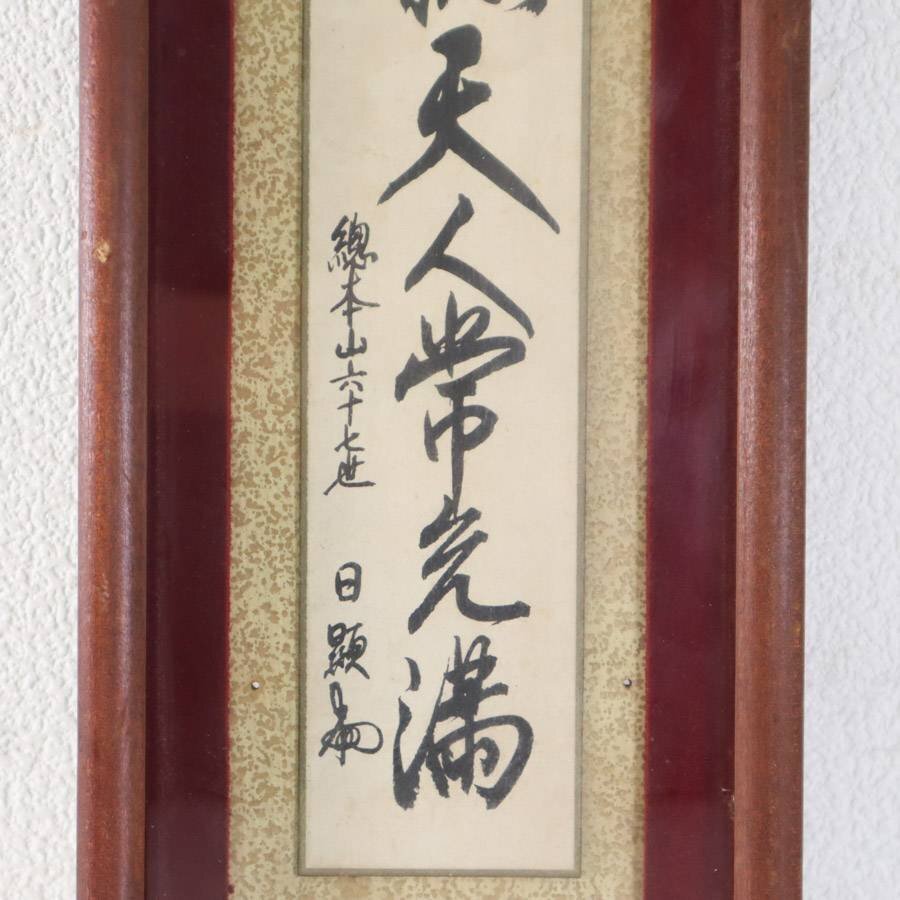 天人常充満
總本山六十七世 日顯